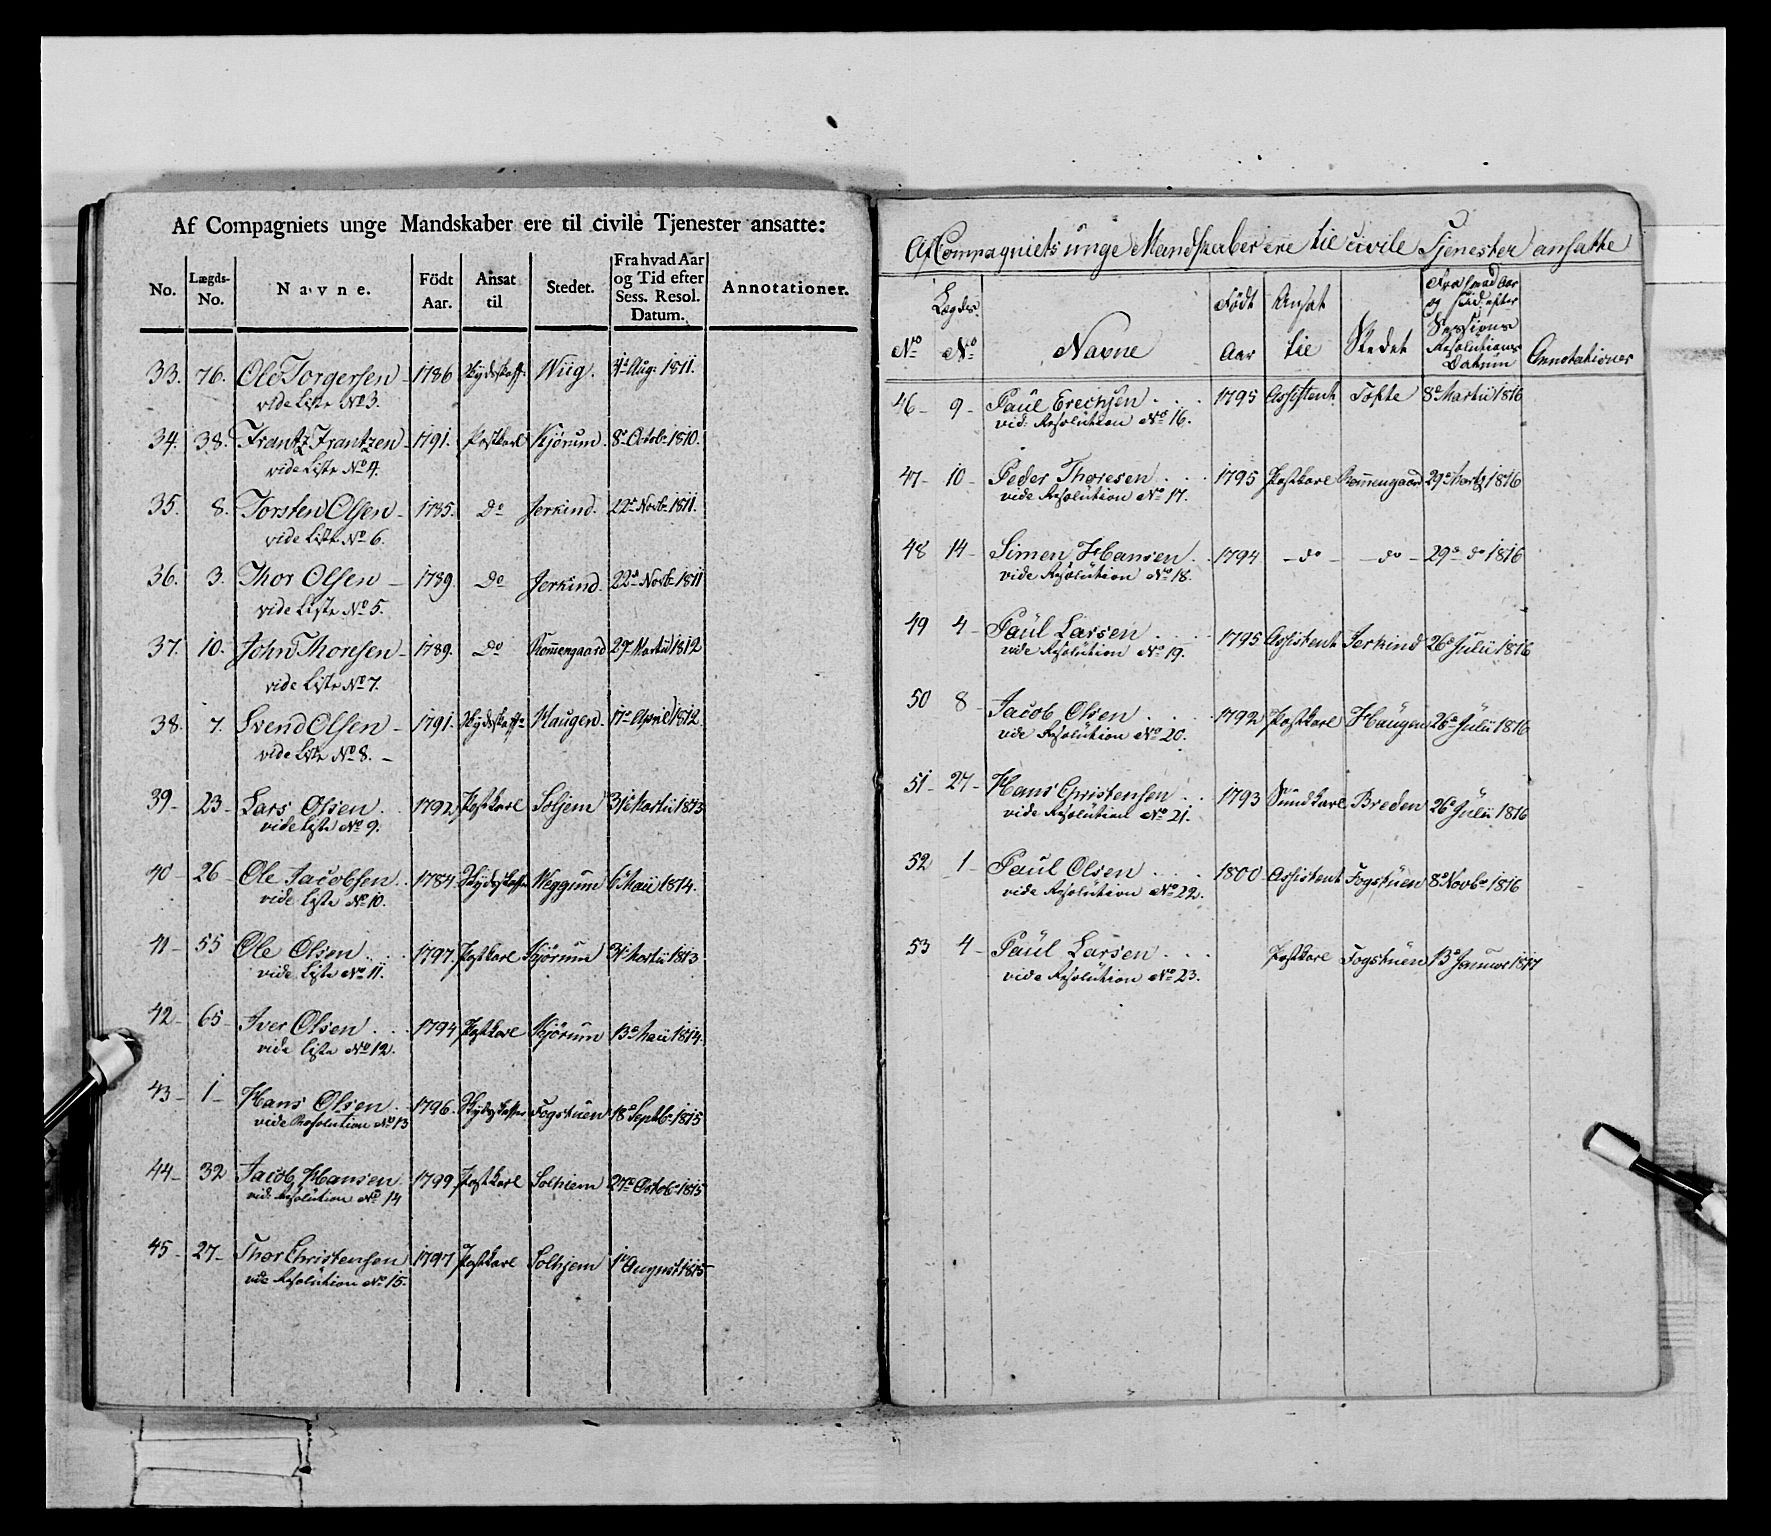 Af Compagniets unge Mandskaber ere til civile Tjenester ansatte:
No. Lægds-No. Navne. Födt Aar. Ansat til Stedet. Fra hvad Aar og Tid efter Sess. Resol. Datum. Annotationer.
33. 76. Ole Torgersen 1786 Skydsskaff. Wiig. Aug: 1811.
vide Liste No 3.
34. 38. Frantz Frantzen 1791. Postkarl Kjørum. 8de Octob. 1810.
vide Liste No 4.
35. 8. Torsten Olsen 1785. Do Jerkind. 22de Novb. 1811.
vide Liste No 6.
36. 3. Thor Olsen 1789. Do Jerkind. 22de Novb. 1811
vide Liste No 5.
37. 10. John Thoresen 1789. Do Rommengaard 29de Martii 1812
vide Liste No 7.
38. 7. Svend Olsen 1791. Skydsskaffe Haugen. 17de April 1812.
vide Liste No 8.
39 23 Lars Olsen. 1792 Postkarl Solhjem 31te Martii 1813
vide Liste No 9.
40 26 Ole Jacobsen 1784 Skydsskaffe Weggum 6te Maii 1814.
vide Liste No 10.
41 55 Ole Olsen 1797. Postkarl Kjørum 31te Martii 1813
vide Liste No 11.
42 65 Iver Olsen 1794 Postkarl Kjørum 13de Maii 1814.
vide Liste No 12.
43 1 Hans Olsen 1796. Skydsskaffer Fogstuen 18de Septb. 1815
vide Resolution No 13
44 32 Jacob Hansen 1799 Postkarl Solhiem 27de Octob. 1815
vid. Resolution No 14
45 27 Thor Christensen 1797 Postkarl Solhjem 1te August 1815
vide Resolution No 15.
Af Compagniets unge Mandskaber ere til civile Tjenester ansatte
No Lægds No Navne Født Aar Ansat til Stedet Fra hvad Aar og Tid efter Sessions Resolutions Datum Annotationer
46 9 Paul Erechsen 1795 Assistent Tofte 8de Martii 1816
vid: Resolution No 16.
47 10 Peder Thoresen 1795 Postkarl Rommengaard 29de Marts 1816
vide Resolution No 17.
48 14 Simen Hansen 1794 do do 29de do 1816
vide Resolution No 18.
49 4 Paul Larsen 1795 Assistent Jerkind 26de Julii 1816
vide Resolution No 19.
50 8 Jacob Olsen 1792 Postkarl Haugen 26de Julii 1816
vide Resolution No 20.
51 27 Hans Christensen 1793 Sundkarl Breden 26de Julii 1816
vide Resolution No 21.
52 1 Paul Olsen 1800 Assistent Fogstuen 8de Novbr 1816
vide Resolution No 22.
53 4 Paul Larsen Postkarl Fogstuen 13de Januar 1817
vide Resolution No 23.